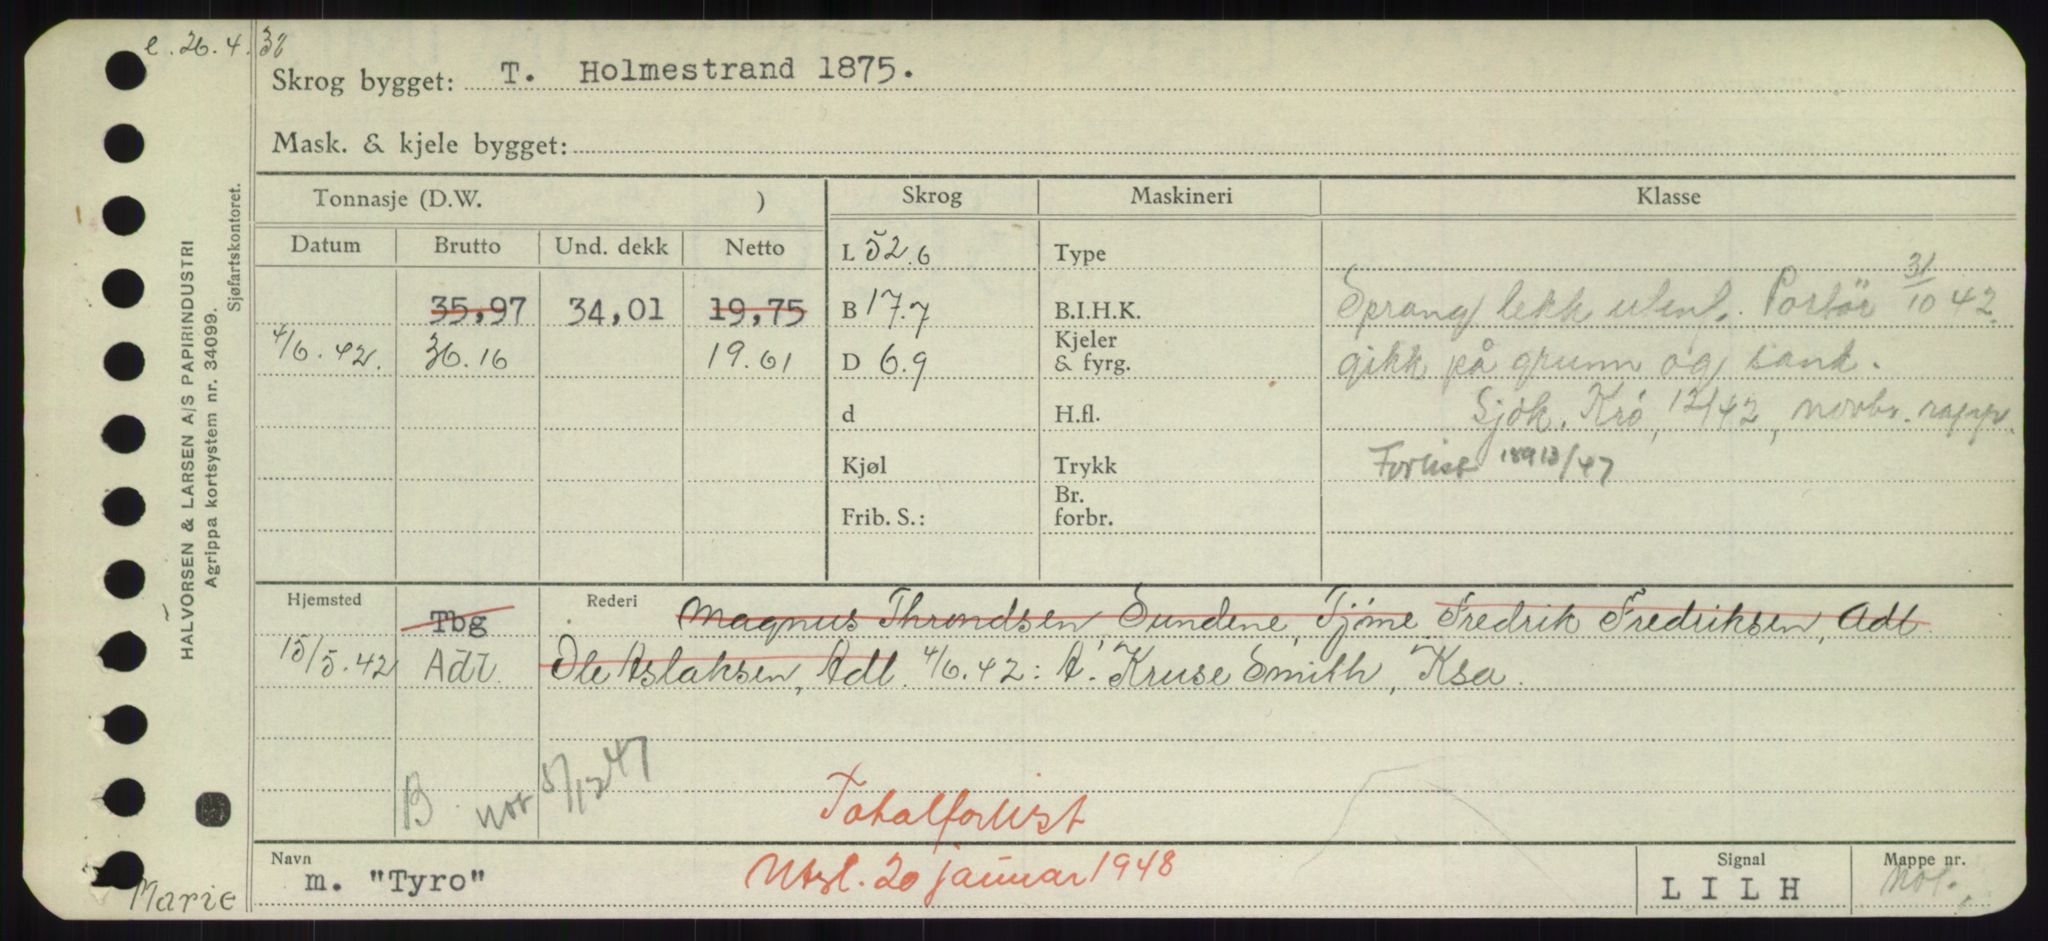 e. 26.4.38
Skrog bygget: T. Holmestrand 1875.
Mask. & kjele bygget:
HALVORSEN & LARSEN A/S PAPIRINDUSTRI
Agrippa kortsystem nr. 34099.
Sjøfartskontoret.
Tonnasje (D.W. ) Skrog Maskineri Klasse
Datum Brutto Und. dekk Netto
L 52.6 Type
35,97 34,01 19,75 B 17.7 B.I.H.K.
Sprang lekk utenf. Portör 31/10 42.
4/6.42. 36.16 19.61 D 6.9 Kjeler & fyrg.
gikk på grunn og sank.
d H.fl.
Sjök. Krö, 12/42, novbr. rapp.
Kjøl Trykk
Forlist /47
Frib. S.: Br. forbr.
Hjemsted Tbg Rederi Magnus Throndsen, Sundene, Tjöme Fredrik Fredriksen, Adl
15/5.42 Adl. Ole Aslaksen, Adl. 4/6.42: A. Kruse Smith, Ksa.
B not 5/12 47
Totalforlist
Navn m. "Tyro" Utsl. 20 januar 1948 Signal LILH Mappe nr. Not.
Marie